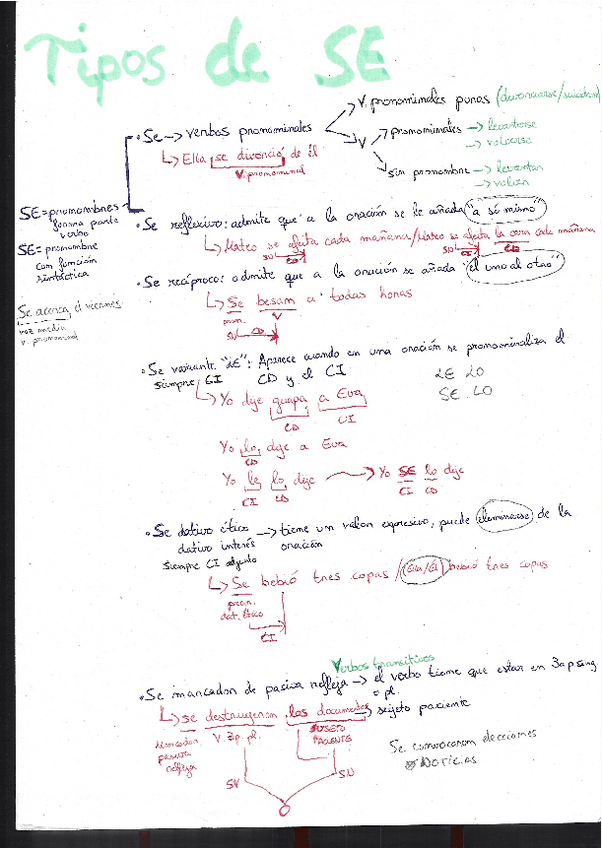 Tipos de SE
V. pronominales puros (divorciarse/suicidarse)
Se → verbos pronominales
V
pronominales → levantarse
→ volcarse
sin pronombre → levantar
→ volcar
Ella se divorció de él
V. pronominal
SE = pronombres
forma parte
verbo
SE = pronombre
con función
sintáctica
Se reflexivo: admite que a la oración se le añada "a sí mismo"
Mateo se afeita cada mañana/Mateo se afeita la cara cada mañana
SN CD
SN CI CD
Se recíproco: admite que a la oración se añada "el uno al otro"
Se acerca el verano
voz media
v. pronominal
Se besan a todas horas
pron. V
SN CD
Se variante "LE": Aparece cuando en una oración se pronominaliza el
siempre CI CD y el CI
LE LO
SE LO
Yo dije guapa a Eva
CD CI
Yo lo dije a Eva
CD
Yo le lo dije → Yo SE lo dije
CI CD CI CD
Se dativo ético → tiene un valor expresivo, puede eliminarse de la
dativo interés oración
siempre CI
Se bebió tres copas / (Ella/Él) bebió tres copas
pron.
dat. ético
CI
Verbos transitivos
Se marcador de pasiva refleja → el verbo tiene que estar en 3a p sing
o pl.
se destruyeron los documentos → sujeto paciente
Marcador V 3p. pl. SUJETO
pasiva PACIENTE
refleja
Se convocaron elecciones
SV SN
O